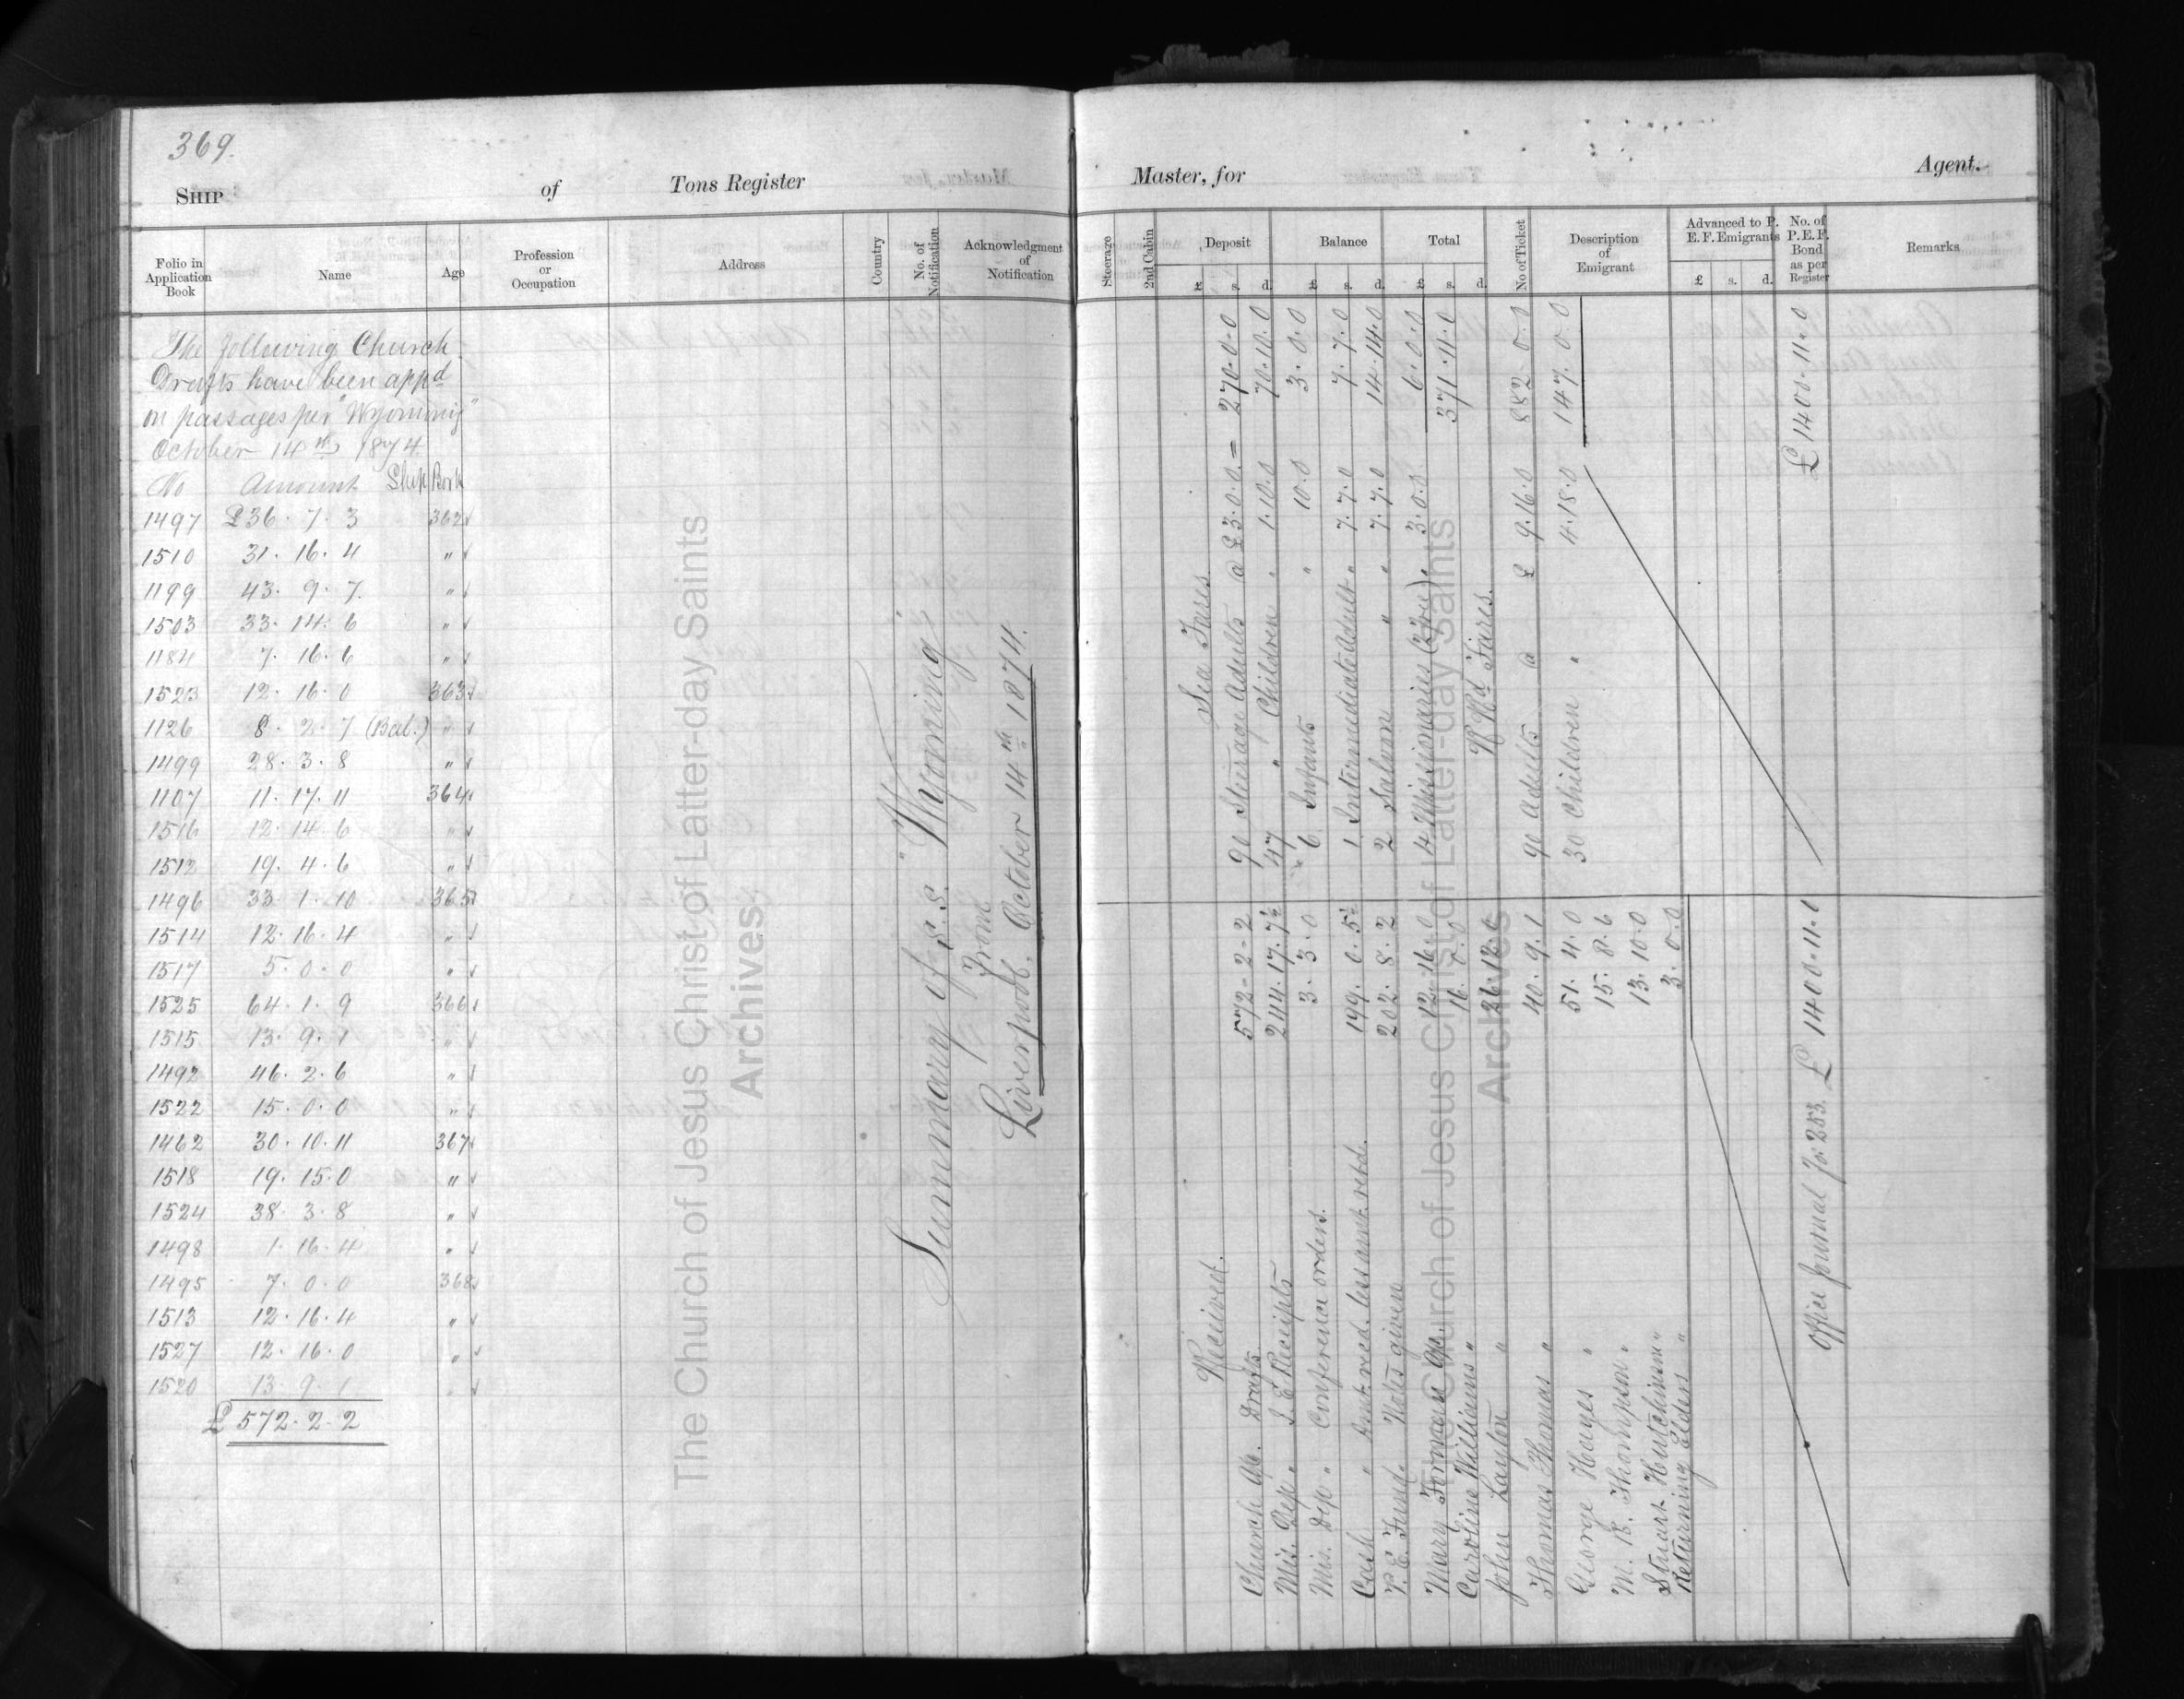 369.
SHIP of Tons Register
Folio in Application Book
Name
Age
Profession or Occupation
Address
Country
No. of Notification
Acknowledgment of Notification
The following Church
Drafts have been appd
on passages per "Wyoming"
October 14th 1874.
No Amount Ship Book
1497 £36. 7. 3 362 ✓
1510 31. 16. 4 " ✓
1199 43. 9. 7. " ✓
1503 33. 14. 6 " ✓
1184 7. 16. 6 " ✓
1523 12. 16. 0 363 ✓
1126 8. 2. 7 (Bal.) " ✓
1499 28. 3. 8 " ✓
1107 11. 17. 11 364 ✓
1516 12. 14. 6 " ✓
1512 19. 4. 6 " ✓
1496 33. 1. 10 365 ✓
1514 12. 16. 4 " ✓
1517 5. 0. 0 " ✓
1525 64. 1. 9 366 ✓
1515 13. 9. 1 " ✓
1492 46. 2. 6 " ✓
1522 15. 0. 0 " ✓
1462 30. 10. 11 367 ✓
1518 19. 15. 0 " ✓
1524 38. 3. 8 " ✓
1498 1. 16. 4 " ✓
1495 7. 0. 0 368 ✓
1513 12. 16. 4 " ✓
1527 12. 16. 0 " ✓
1520 13. 9. 1 " ✓
£572. 2. 2
Summary of S.S. "Wyoming"
From
Liverpool. October 14th 1874.
Master, for Agent.
Steerage
2nd Cabin
Deposit
£ s. d.
Balance
£ s. d.
Total
£ s. d.
No of Ticket
Description of Emigrant
Advanced to P. E. F. Emigrants
£ s. d.
No. of P.E.F. Bond as per Register
Remarks
Received.
Church a/c. Drafts 572. 2. 2
Mis. Dep. " I. E. Receipts 244. 17. 7½
Mis. Dep. " Conference orders. 3. 3. 0
Cash " Amt. recd. less amt. retd. 199. 0. 5½
P. E. Fund. Notes given 202. 8. 2
Mary a/c. 12. 16. 0
Caroline Williams " 16. 0. 0
John Layton " 26. 12. 0
Thomas Thomas " 40. 9. 1
George Hayes " 51. 4. 0
M. B. Thompson " 15. 8. 6
Stuart Hutchison " 13. 10. 0
Returning Elders " 3. 0. 0
Office Journal fo: 253. £ 1400. 11. 0
Sea Fares.
90 Steerage Adults @ £3. 0. 0. = 270. 0. 0
47 " Children " 1. 10. 0 70. 10. 0
6 Infants " 10. 0 3. 0. 0
1 Intermediate Adult " 7. 7. 0 7. 7. 0
2 Saloon " " 7. 7. 0 14. 14. 0
4 Missionaries (2 free) " 3. 0. 0 6. 0. 0
371. 11. 0
R. Rd. Fares.
90 Adults @ £ 9. 16. 0 882. 0. 0
30 Children " 4. 18. 0 147. 0. 0
£ 1400. 11. 0
The Church of Jesus Christ of Latter-day Saints
Archives
The Church of Jesus Christ of Latter-day Saints
Archives